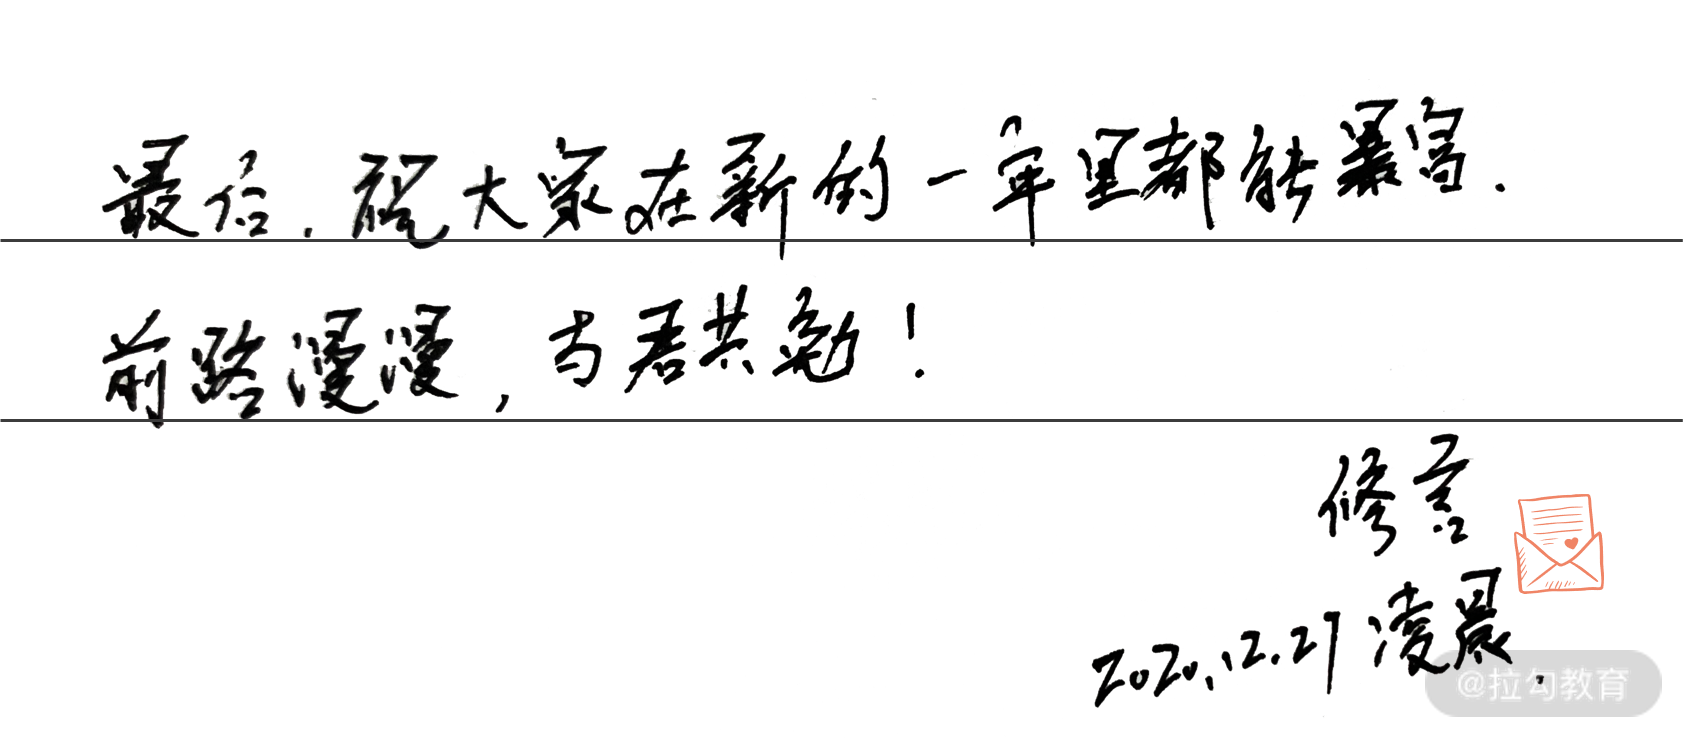 最后，祝大家在新的一年里都能暴富.
前路漫漫，与君共勉！
修言
2020.12.27 凌晨.
@拉勾教育